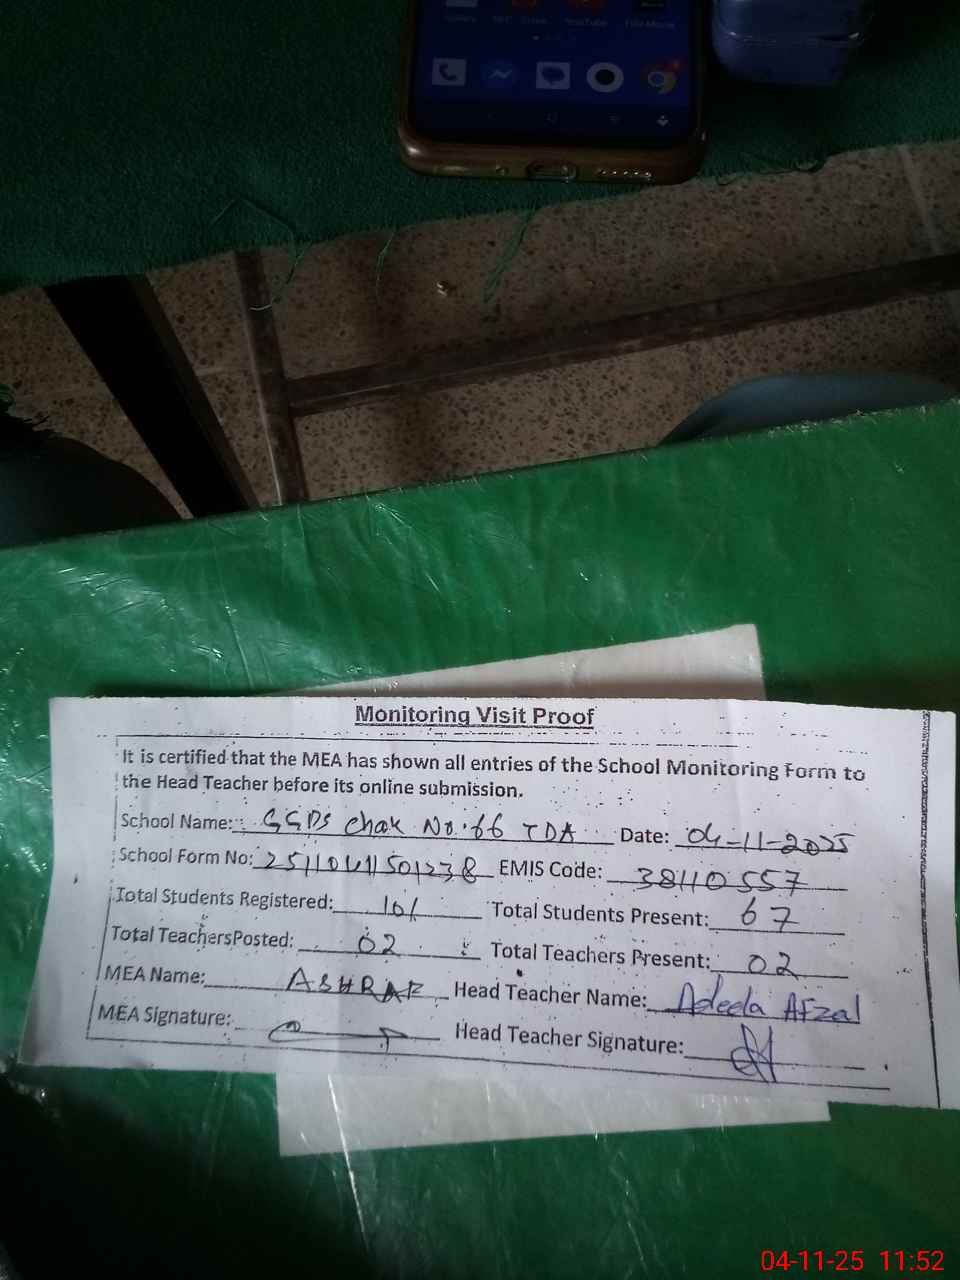 YouTube
Monitoring Visit Proof
It is certified that the MEA has shown all entries of the School Monitoring Form to
the Head Teacher before its online submission.
School Name: GGPS Chak No. 66 TDA Date: 04-11-2025
School Form No: 25110411501238 EMIS Code: 38110557
Total Students Registered: 101 Total Students Present: 67
Total TeachersPosted: 02 Total Teachers Present: 02
MEA Name: ASHRAF Head Teacher Name: Adeela Afzal
MEA Signature: Head Teacher Signature:
04-11-25 11:52